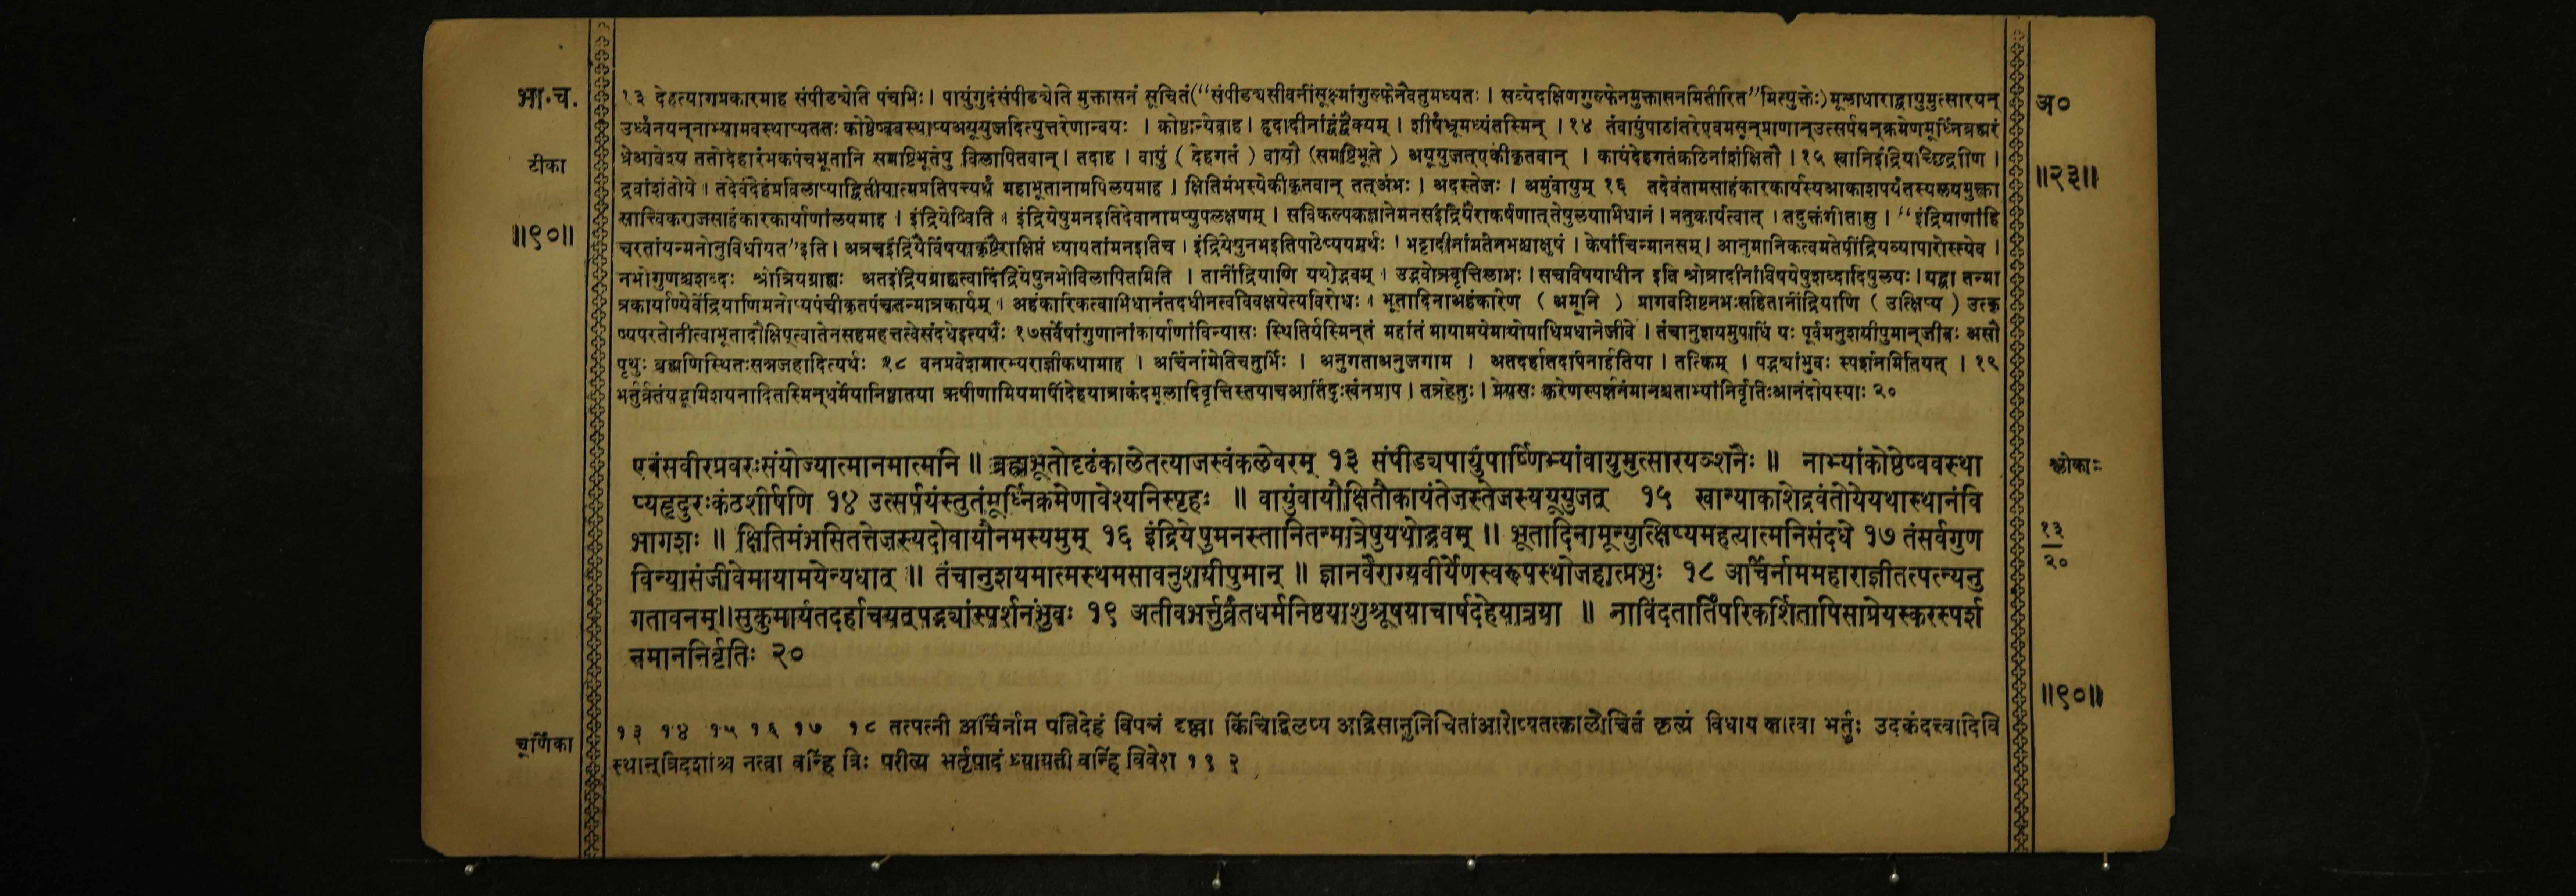 भा.च.
टीका
॥९०॥
१३ देहत्यागप्रकारमाह संपीड्येति पंचभिः। पायुंगुदंसंपीड्येति मुक्तासनं सूचितं(“संपीड्यसीवनींसूक्ष्मांगुल्फेनैवतुमध्यतः । सव्येदक्षिणगुल्फेनमुक्तासनमितीरित”मित्युक्तेः)मूलाधाराद्वायुमुत्सारयन्
उर्ध्वंनयन्नाभ्यामवस्थाप्यततः कोष्ठेष्ववस्थाप्यअयूयुजदित्युत्तरेणान्वयः । कोष्ठान्येवाह। हृदादीनांद्वंद्वैक्यम् । शीर्षंभ्रूमध्यंतस्मिन् । १४ तंवायुंपाठांतरेएवमसून्प्राणान्उत्सर्पयन्क्रमेणमूर्ध्निब्रह्मरं
ध्रेआवेश्य ततोदेहारंभकपंचभूतानि समष्टिभूतेषु विलापितवान्। तदाह । वायुं ( देहगतं ) वायौ (समष्टिभूते ) अयूयुजत्एकीकृतवान् । कायंदेहगतंकठिनांशंक्षितौ । १५ खानिइंद्रियच्छिद्राणि ।
द्रवांशंतोये । तदेवंदेहंप्रविलाप्याद्वितीयात्मप्रतिपत्त्यर्थं महाभूतानामपिलयमाह । क्षितिमंभस्येकीकृतवान् तत्अंभः । अदस्तेजः । अमुंवायुम् १६ तदेवंतामसाहंकारकार्यस्यआकाशपर्यंतस्यलयमुक्त्वा
सात्त्विकराजसाहंकारकार्याणांलयमाह । इंद्रियेष्विति । इंद्रियेषुमनइतिदेवानामप्युपलक्षणम् । सविकल्पकज्ञानेमनसइंद्रियैराकर्षणात्तेषुलयाभिधानं । नतुकार्यत्वात् । तदुक्तंगीतासु । “इंद्रियाणांहि
चरतांयन्मनोनुविधीयत”इति। अत्रचइंद्रियैर्विषयाकृष्टैराक्षिप्तं ध्यायतांमनइतिच । इंद्रियेषुनभइतिपाठेप्ययमर्थः । भट्टादीनांमतेनभश्चाक्षुषं । केषांचिन्मानसम्। आनुमानिकत्वमतेपींद्रियव्यापारोस्त्येव ।
नभोगुणश्चशब्दः श्रोत्रियग्राह्यः अतइंद्रियग्राह्यत्वादिंद्रियेषुनभोविलापितमिति । तानींद्रियाणि यथोद्भवम् । उद्भवोत्रवृत्तिलाभः। सचविषयाधीन इति श्रोत्रादीनांविषयेषुशब्दादिषुलयः। यद्वा तन्मा
त्रकार्याण्येवेंद्रियाणिमनोप्यपंचीकृतपंचतन्मात्रकार्यम् । अहंकारिकत्वाभिधानंतदधीनत्वविवक्षयेत्यविरोधः । भूतादिनाअहंकारेण ( अमूनि ) प्रागवशिष्टनभःसहितानींद्रियाणि ( उत्क्षिप्य ) उत्कृ
ष्यपरतोनीत्वाभूतादौक्षिप्त्वातेनसहमहत्तत्वेसंदधेइत्यर्थः १७सर्वेषांगुणानांकार्याणांविन्यासः स्थितिर्यस्मिन्तं महांतं मायामयेमायोपाधिप्रधानेजीवे । तंचानुशयमुपाधिं यः पूर्वमनुशयीपुमान्जीवः असौ
पृथुः ब्रह्मणिस्थितःसन्नजहादित्यर्थः १८ वनप्रवेशमारभ्यराज्ञीकथामाह । अर्चिर्नामेतिचतुर्भिः । अनुगताअनुजगाम । अतदर्हातदपिनार्हतिया । तत्किम् । पद्भ्यांभुवः स्पर्शनमितियत् । १९
भर्तुर्व्रतंयद्भूमिशयनादितस्मिन्धर्मेयानिष्ठातया ऋषीणामियमार्षीदेहयात्राकंदमूलादिवृत्तिस्तयाचआर्तिंदुःखंनप्राप । तत्रहेतुः । प्रेयसः करेणस्पर्शनंमानश्चताभ्यांनिर्वृतिःआनंदोयस्याः २०
एवंसवीरप्रवरःसंयोज्यात्मानमात्मनि ॥ ब्रह्मभूतोदृढंकालेतत्याजस्वंकलेवरम् १३ संपीड्यपायुंपार्ष्णिभ्यांवायुमुत्सारयञ्शनैः ॥ नाभ्यांकोष्ठेष्ववस्था
प्यहृदुरःकंठशीर्षणि १४ उत्सर्पयंस्तुतंमूर्ध्निक्रमेणावेश्यनिस्पृहः ॥ वायुंवायौक्षितौकायंतेजस्तेजस्ययूयुजत् १५ खान्याकाशेद्रवंतोयेयथास्थानंवि
भागशः ॥ क्षितिमंभसितत्तेजस्यदोवायौनभस्यमुम् १६ इंद्रियेषुमनस्तानितन्मात्रेषुयथोद्भवम् ॥ भूतादिनामून्युत्क्षिप्यमहत्यात्मनिसंदधे १७ तंसर्वगुण
विन्यासंजीवेमायामयेन्यधात् ॥ तंचानुशयमात्मस्थमसावनुशयीपुमान् ॥ ज्ञानवैराग्यवीर्येणस्वरूपस्थोजहात्प्रभुः १८ अर्चिर्नाममहाराज्ञीतत्पत्न्यनु
गतावनम्॥सुकुमार्यतदर्हाचयत्पद्भ्यांस्पर्शनंभुवः १९ अतीवभर्तुर्व्रतधर्मनिष्ठयाशुश्रूषयाचार्षदेहयात्रया ॥ नाविंदतार्तिंपरिकर्शितापिसाप्रेयस्करस्पर्श
नमाननिर्वृतिः २०
चूर्णिका
१३ १४ १५ १६ १७ १८ तत्पत्नी अर्चिर्नाम पतिदेहं विपन्नं दृष्ट्वा किंचिद्विलप्य अद्रिसानुनिचितांआरोप्यतत्कालोचितं कृत्यं विधाय स्नात्वा भर्तुः उदकंदत्त्वादिवि
स्थान्त्रिदशांश्च नत्वा वन्हिं त्रिः परीत्य भर्तृपादं ध्यायती वन्हिं विवेश १९ २
अ०
॥२३॥
श्लोकाः
१३
२०
॥९०॥